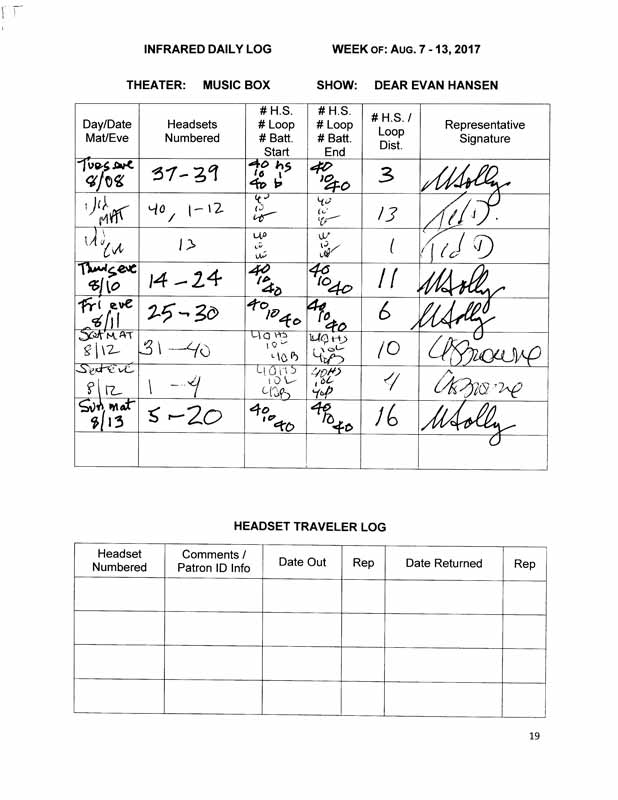 INFRARED DAILY LOG WEEK OF: AUG. 7 - 13, 2017
THEATER: MUSIC BOX SHOW: DEAR EVAN HANSEN
Day/Date
Mat/Eve
Headsets
Numbered
# H.S.
# Loop
# Batt.
Start
# H.S.
# Loop
# Batt.
End
# H.S. /
Loop
Dist.
Representative
Signature
Tues eve
8/08
37-39
40 hs
10 l
40 b
40
10
40
3
MAT
40, 1-12
40
10
40
10
13
Ted D.
Eve
13
40
10
40
10
1
Ted D
Thurs eve
8/10
14-24
40
10
40
40
10
40
11
Fri eve
8/11
25-30
40
10
40
40
10
40
6
Sat MAT
8/12
31-40
40 HS
10 L
40B
40HS
10L
40B
10
Sat eve
8/12
1-4
40HS
10L
40B
40HS
10L
40B
4
Sun mat
8/13
5-20
40
10
40
40
10
40
16
HEADSET TRAVELER LOG
Headset
Numbered
Comments /
Patron ID Info
Date Out
Rep
Date Returned
Rep
19